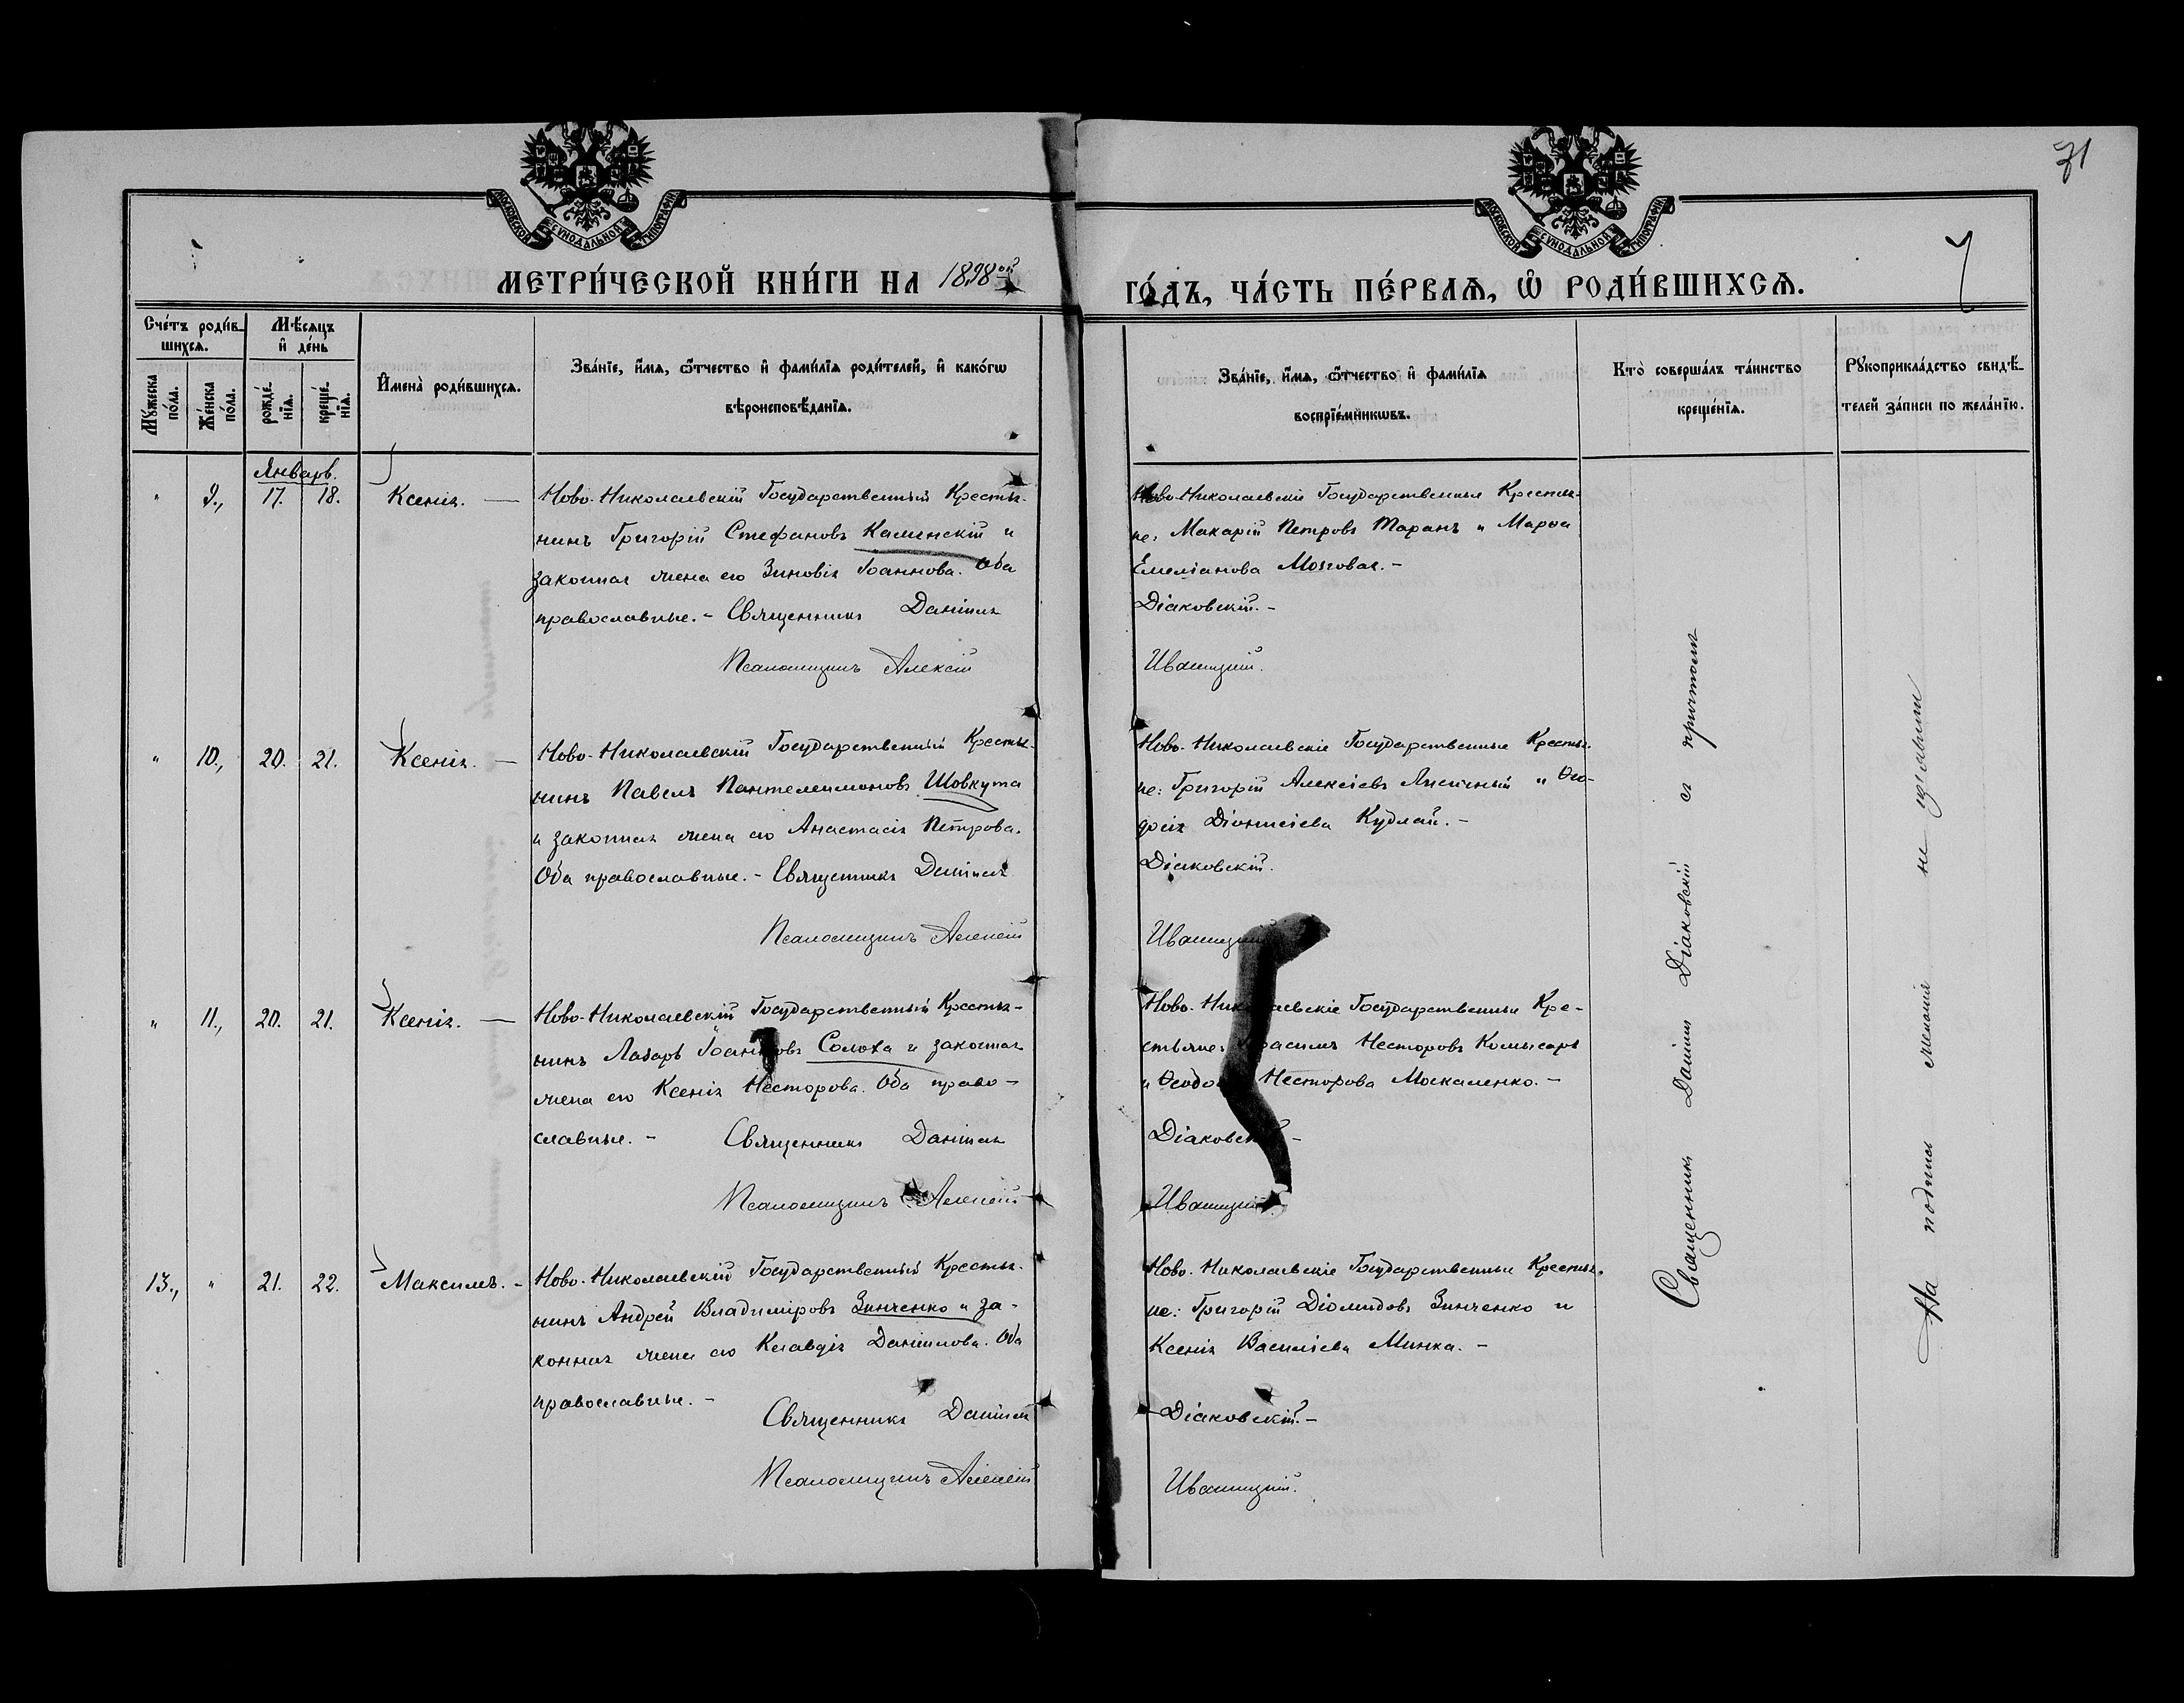 71
МОСКОВСКОЙ СѴНОДАЛЬНОЙ ТИПОГРАФІИ
МОСКОВСКОЙ СѴНОДАЛЬНОЙ ТИПОГРАФІИ
МЕТРИ́ЧЕСКОЙ КНИ́ГИ НА 1898ой ГО́ДЪ, ЧА́СТЬ ПЕ́РВАѦ, Ѡ҆ РОДИ́ВШИХСѦ.
Сче́тъ роди́вшихсѧ.
Мꙋ́жеска по́ла.
Же́нска по́ла.
Мѣ́сѧцъ и҆ де́нь
рожде́нїѧ.
креще́нїѧ.
И҆мена̀ роди́вшихсѧ.
Зва́нїе, и҆́мѧ, ѻ҆́тчество и҆ фами́лїѧ роди́телей, и҆ како́гѡ
вѣроисповѣ́данїѧ.
Зва́нїе, и҆́мѧ, ѻ҆́тчество и҆ фами́лїѧ
воспрїе́мникѡвъ.
Кто̀ соверша́лъ та́инство
креще́нїѧ.
Рꙋкоприкла́дство свидѣ́телей за́писи по жела́нїю.
Январь.
" 9., 17. 18. Ксенія. —
Ново-Николаевскій Государственный Крестья-
нинъ Григорій Стефановъ Каменскій и
законная жена его Зиновія Іоаннова. Оба
православные. - Священникъ Даніилъ
Псаломщикъ Алексій
Ново-Николаевскіе Государственные Крестья-
не: Макарій Петровъ Таранъ и Марѳа
Емеліанова Мозговая. -
Діаковскій. -
Ивашицкій.
" 10., 20. 21. Ксенія. —
Ново-Николаевскій Государственный Крестья-
нинъ Павелъ Пантелеимоновъ Шовкута
и законная жена его Анастасія Петрова.
Оба православные. - Священникъ Даніилъ
Псаломщикъ Алексій
Ново-Николаевскіе Государственные Крестья-
не: Григорій Алексіевъ Лисичный и Ѳео-
досія Діонисіева Кудлай. -
Діаковскій.
Ивашицкій
" 11., 20. 21. Ксенія. —
Ново-Николаевскій Государственный Крестья-
нинъ Лазарь Іоанновъ Солоха и законная
жена его Ксенія Несторова. Оба право-
славные. - Священникъ Даніилъ
Псаломщикъ Алексій
Ново-Николаевскіе Государственные Кре-
стьяне: Несторовъ Комысаръ
и Несторова Москаленко. -
Діаковскій -
Ивашицкій.
13., " 21. 22. Максимъ. -
Ново-Николаевскій Государственный Крестья-
нинъ Андрей Владиміровъ Зинченко и за-
конная жена его Клавдія Даніилова. Оба
православные. -
Священникъ Даніилъ
Псаломщикъ Алексій
Ново-Николаевскіе Государственные Крестья-
не: Григорій Діомидовъ Зинченко и
Ксенія Василіева Минка. -
Діаковскій. -
Ивашицкій.
Священникъ Даніилъ Діаковскій съ причтомъ
На подпись желанія не изъявили